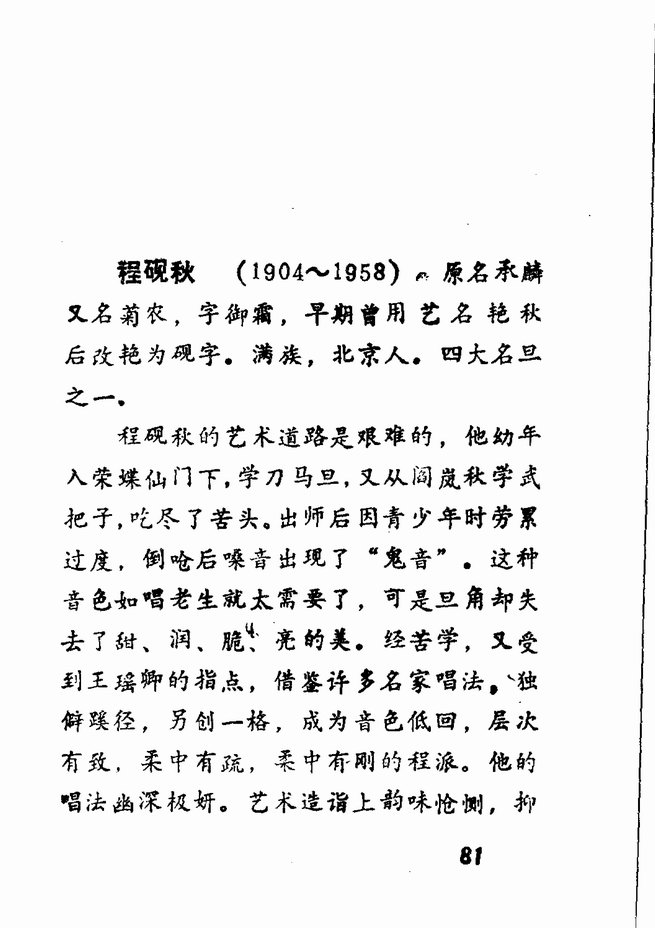 程砚秋 (1904～1958)。原名承麟
又名菊农，字御霜，早期曾用艺名艳秋
后改艳为砚字。满族，北京人。四大名旦
之一。
程砚秋的艺术道路是艰难的，他幼年
入荣蝶仙门下，学刀马旦，又从阎岚秋学武
把子，吃尽了苦头。出师后因青少年时劳累
过度，倒呛后嗓音出现了“鬼音”。这种
音色如唱老生就太需要了，可是旦角却失
去了甜、润、脆、亮的美。经苦学，又受
到王瑶卿的指点，借鉴许多名家唱法。独
僻蹊径，另创一格，成为音色低回，层次
有致，柔中有疏，柔中有刚的程派。他的
唱法幽深极妍。艺术造诣上韵味怆恻，抑
81